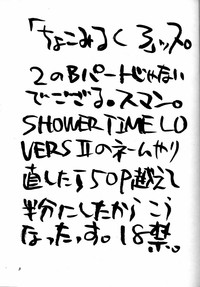 「ちょこみるくろッス。
2のBパートじゃない
でござる。スマン。
SHOWER TIME LO
VERS IIのネームやり
直したら50P越えて
半分にしたからこう
なったっす。18禁。